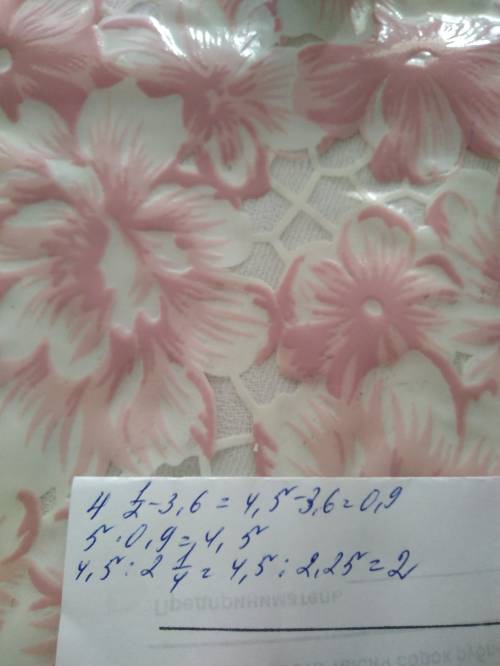 4 1/2 - 3,6 = 4,5 - 3,6 = 0,9
5 · 0,9 = 4,5
4,5 : 2 1/4 = 4,5 : 2,25 = 2
Предприниматель